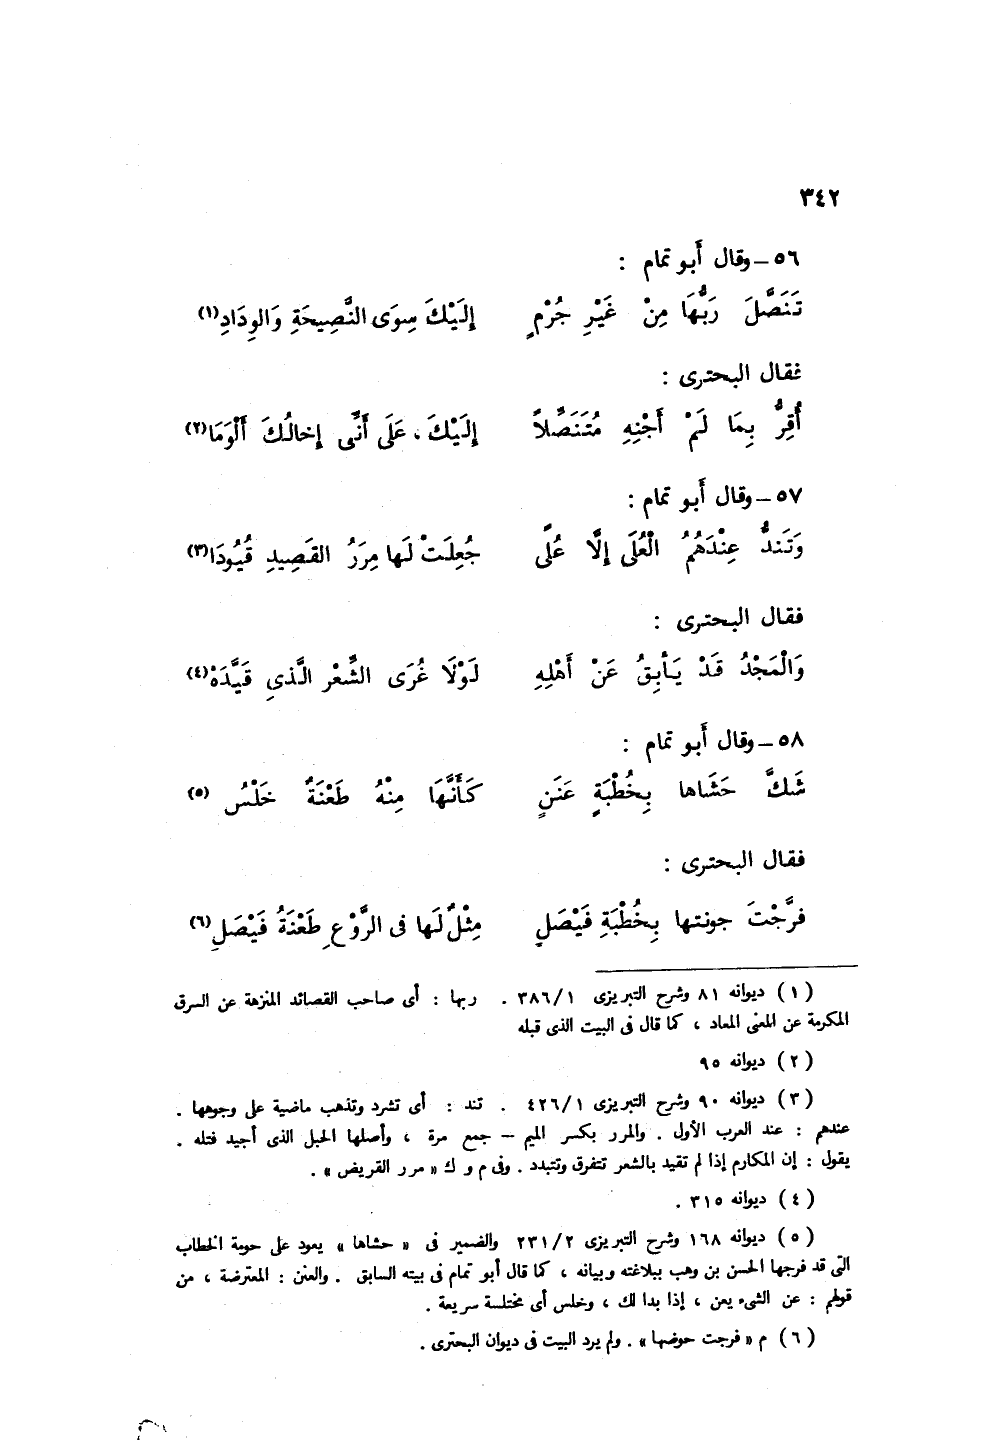 ٣٤٢
٥٦ – وقال أبو تمام :
تَنَصَّلَ رَبُّهَا مِنْ غَيْرِ جُرْمٍ إِلَيْكَ سِوَى النَّصِيحَةِ وَالوِدَادِ(١)
فقال البحترى :
أُقِرُّ بِمَا لَمْ أَجْنِهِ مُتَنَصِّلاً إِلَيْكَ ، عَلَى أَنِّى إخالُكَ أَلْوَمَا(٢)
٥٧ – وقال أبو تمام :
وَتَنِدُّ عِنْدَهُمُ الْعُلَى إِلَّا عُلًى جُعِلَتْ لَها مِرَرُ القَصِيدِ قُيُودَا(٣)
فقال البحترى :
وَالْمَجْدُ قَدْ يَأبِقُ عَنْ أَهْلِهِ لَوْلَا عُرَى الشِّعْرِ الَّذِى قَيَّدَهْ(٤)
٥٨ – وقال أبو تمام :
شَكَّ حَشَاها بِخُطْبَةٍ عَنَنٍ كَأَنَّهَا مِنْهُ طَعْنَةٌ خَلْسُ (٥)
فقال البحترى :
فرَّجْتَ جونتها بِخُطْبَةِ فَيْصَلٍ مِثْلٌ لَها فى الرَّوْعِ طَعْنَةُ فَيْصَلِ(٦)
(١) ديوانه ٨١ وشرح التبريزى ٣٨٦/١ . ربها : أى صاحب القصائد المنزهة عن السرق
المكرمة عن المعنى المعاد ، كما قال فى البيت الذى قبله
(٢) ديوانه ٩٥
(٣) ديوانه ٩٠ وشرح التبريزى ٤٢٦/١ . تند : أى تشرد وتذهب ماضية على وجوهها .
عندهم : عند العرب الأول . والمرر بكسر الميم – جمع مرة ، وأصلها الحبل الذى أجيد فتله .
يقول : إن المكارم إذا لم تقيد بالشعر تتفرق وتتبدد . وفى م و ك « مرر القريض » .
(٤) ديوانه ٣١٥ .
(٥) ديوانه ١٦٨ وشرح التبريزى ٢٣١/٢ والضمير فى « حشاها » يعود على حومة الخطاب
التى قد فرجها الحسن بن وهب ببلاغته وبيانه ، كما قال أبو تمام فى بيته السابق . والعنن : المعترضة ، من
قولهم : عن الشىء يعن ، إذا بدا لك ، وخلس أى مختلسة سريعة .
(٦) م « فرجت حوضها » . ولم يرد البيت فى ديوان البحترى .